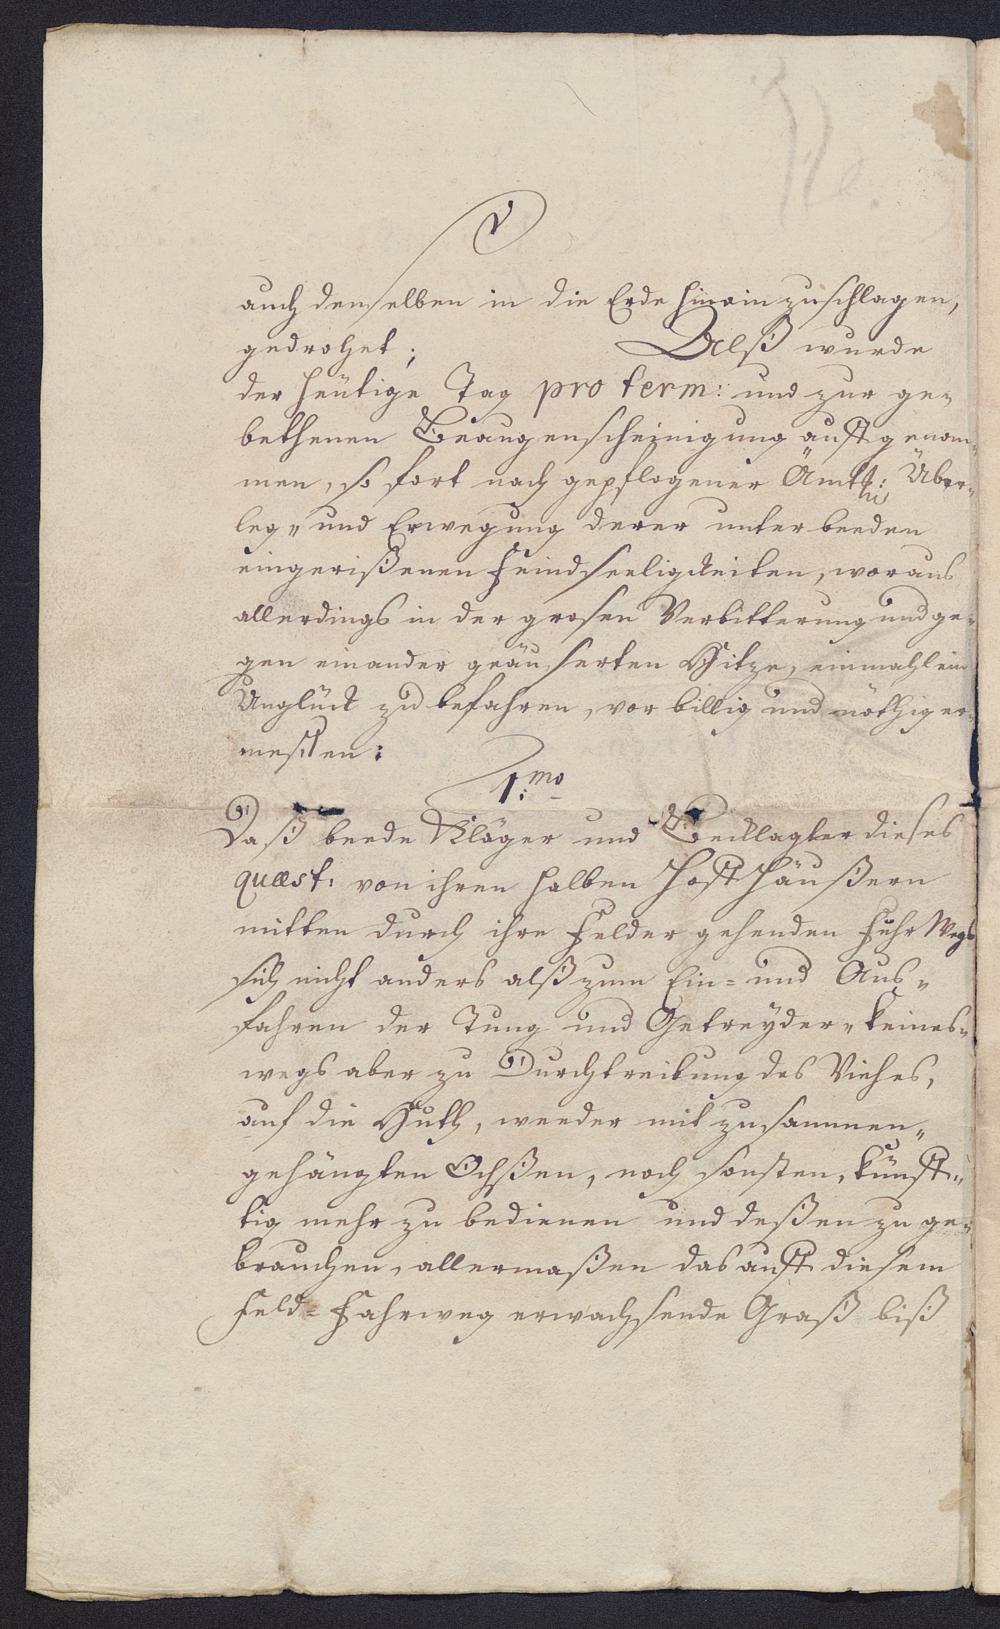 auch denselben in die Erde hinein zuschlagen,
gedrohet; Alß wurde
der heütige Tag pro term: und zur ge„
bethenen Beaugenscheinigung auff genom„
men, so fort nach gepflogener Ämtl: Über„
leg„ und Erwegung derer unter beeden
eingerißenen Feindseeligkeiten, woraus
allerdings in der grosen Verbitterung und ge„
gen einander geäuserten Hitze, einmahl ein
Unglück zu befahren, vor billig und nöthig er„
meßen:
1:mo
Daß beede Kläger und Becklagter dieses
quæst: von ihren halben Hoff Häußern
mitten durch ihre Felder gehenden Fuhr Wegs
sich nicht anders alß zum Ein= und Aus„
fahren der Tung und Getreyder„ keines„
wegs aber zu Durchtreibung des Viehes,
auf die Huth, weeder mit zusammen„
gehängten Ochßen, noch sonsten, künff„
tig mehr zu bedienen und deßen zu ge„
brauchen, allermaßen das auff diesem
Feld=Fahrweg erwachsende Graß biß